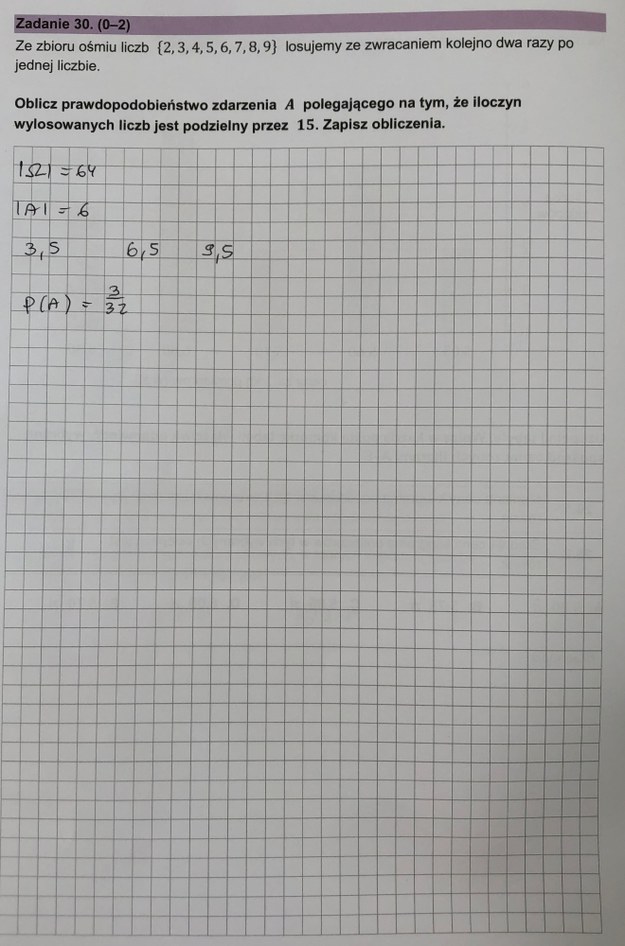 Zadanie 30. (0–2)
Ze zbioru ośmiu liczb {2, 3, 4, 5, 6, 7, 8, 9} losujemy ze zwracaniem kolejno dwa razy po
jednej liczbie.
Oblicz prawdopodobieństwo zdarzenia A polegającego na tym, że iloczyn
wylosowanych liczb jest podzielny przez 15. Zapisz obliczenia.
|Ω| = 64
|A| = 6
3,5 6,5 9,5
P(A) = 3/32